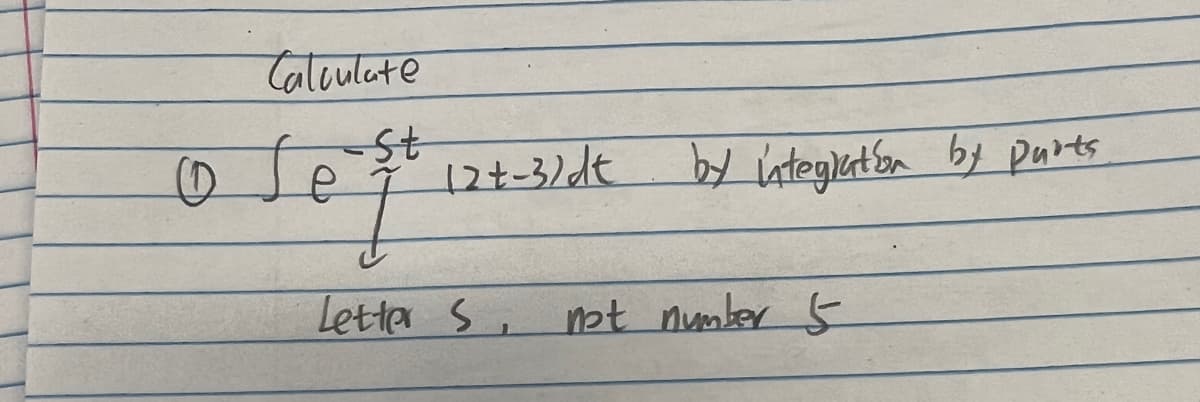 Calculate
① ∫ e^{-st} (2t-3) dt by integration by parts
Letter s, not number 5